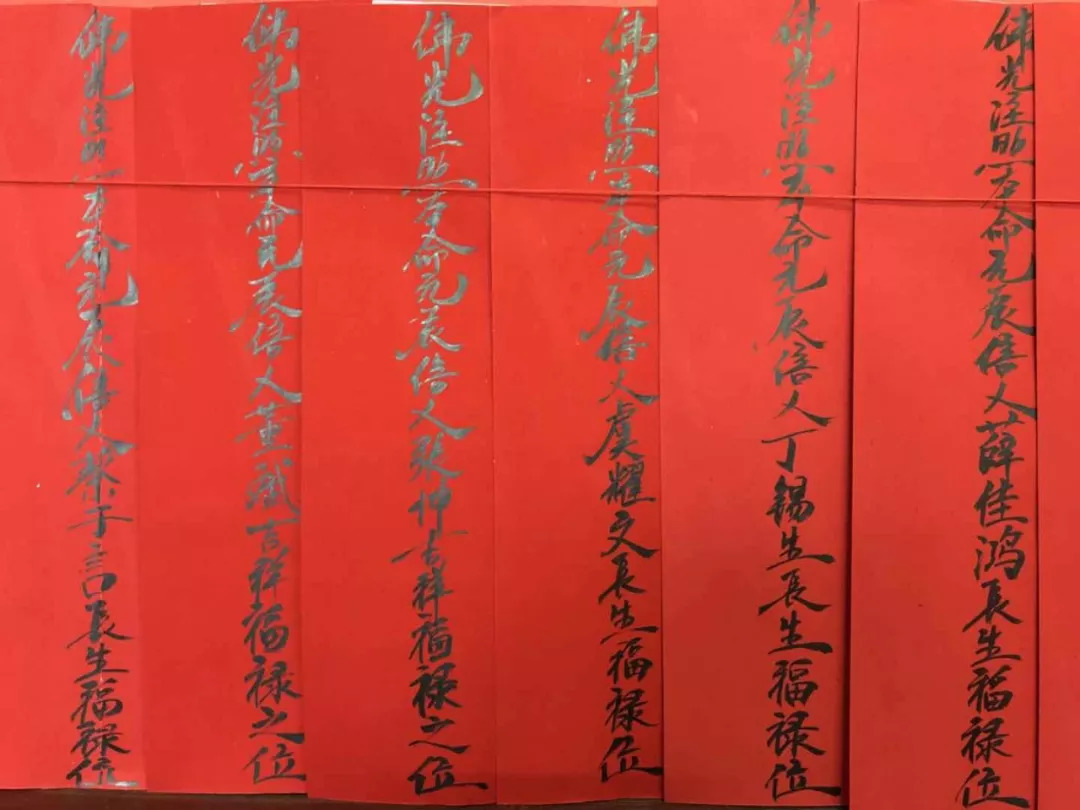 佛光注照本命元辰信人薛佳鸿長生福禄位
佛光注照本命元辰信人丁锡生長生福禄位
佛光注照本命元辰信人虞耀文長生福禄位
佛光注照本命元辰信人张坤吉祥福禄之位
佛光注照本命元辰信人董吉祥福禄之位
佛光注照本命元辰信人蔡于長生福禄位